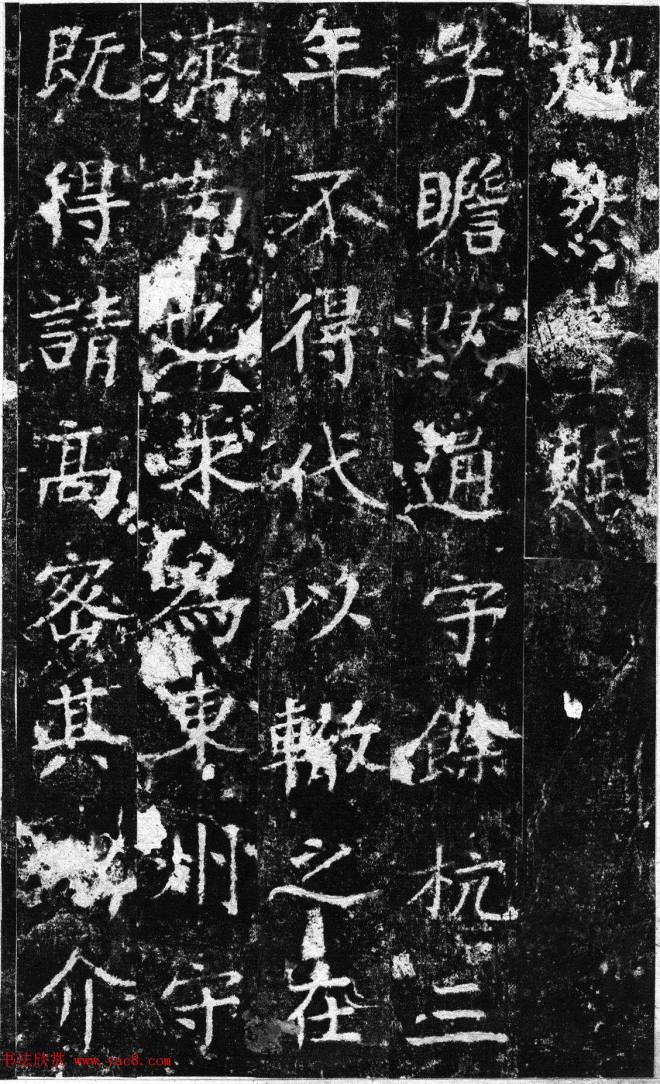 超然臺賦
子瞻既通守餘杭三
年不得代以轍之在
濟南也求爲東州守
既得請高密其介
书法欣赏 www.yac8.com